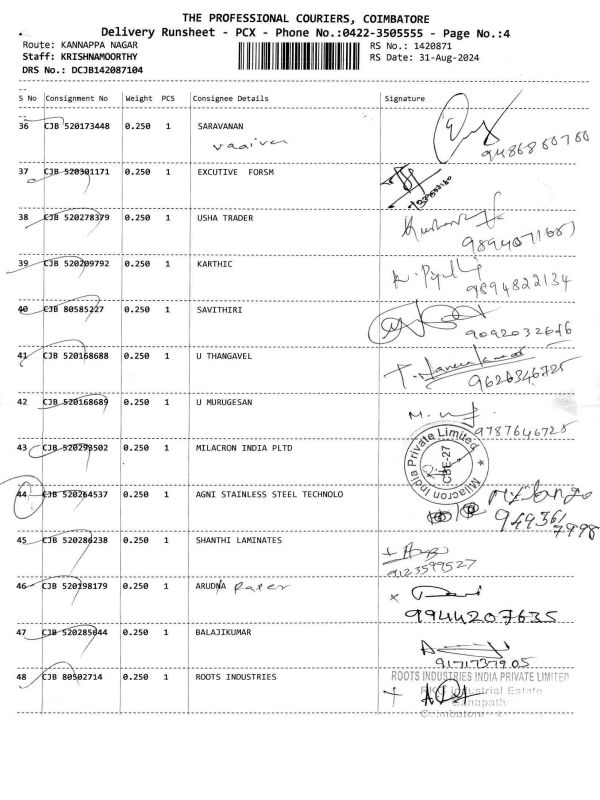 THE PROFESSIONAL COURIERS, COIMBATORE
Delivery Runsheet - PCX - Phone No.:0422-3505555 - Page No.:4
Route: KANNAPPA NAGAR RS No.: 1420871
Staff: KRISHNAMOORTHY RS Date: 31-Aug-2024
DRS No.: DCJB142087104
S No Consignment No Weight PCS Consignee Details Signature
36 CJB 520173448 0.250 1 SARAVANAN
9486860760
37 CJB 520301171 0.250 1 EXCUTIVE FORSM
38 CJB 520278379 0.250 1 USHA TRADER
9894071687
39 CJB 520209792 0.250 1 KARTHIC
9894822134
40 CJB 80585227 0.250 1 SAVITHIRI
9092032646
41 CJB 520168688 0.250 1 U THANGAVEL
9626346725
42 CJB 520168689 0.250 1 U MURUGESAN
9787646725
43 CJB 520293502 0.250 1 MILACRON INDIA PLTD
Milacron India Private Limited
CBE-27
44 CJB 520264537 0.250 1 AGNI STAINLESS STEEL TECHNOLO
949361
7998
45 CJB 520286238 0.250 1 SHANTHI LAMINATES
9123599527
46 CJB 520198179 0.250 1 ARUDNA Paper
9944207635
47 CJB 520285044 0.250 1 BALAJIKUMAR
9171737905
48 CJB 80502714 0.250 1 ROOTS INDUSTRIES
ROOTS INDUSTRIES INDIA PRIVATE LIMITED
Industrial Estate
Ganapathi
Coimbatore